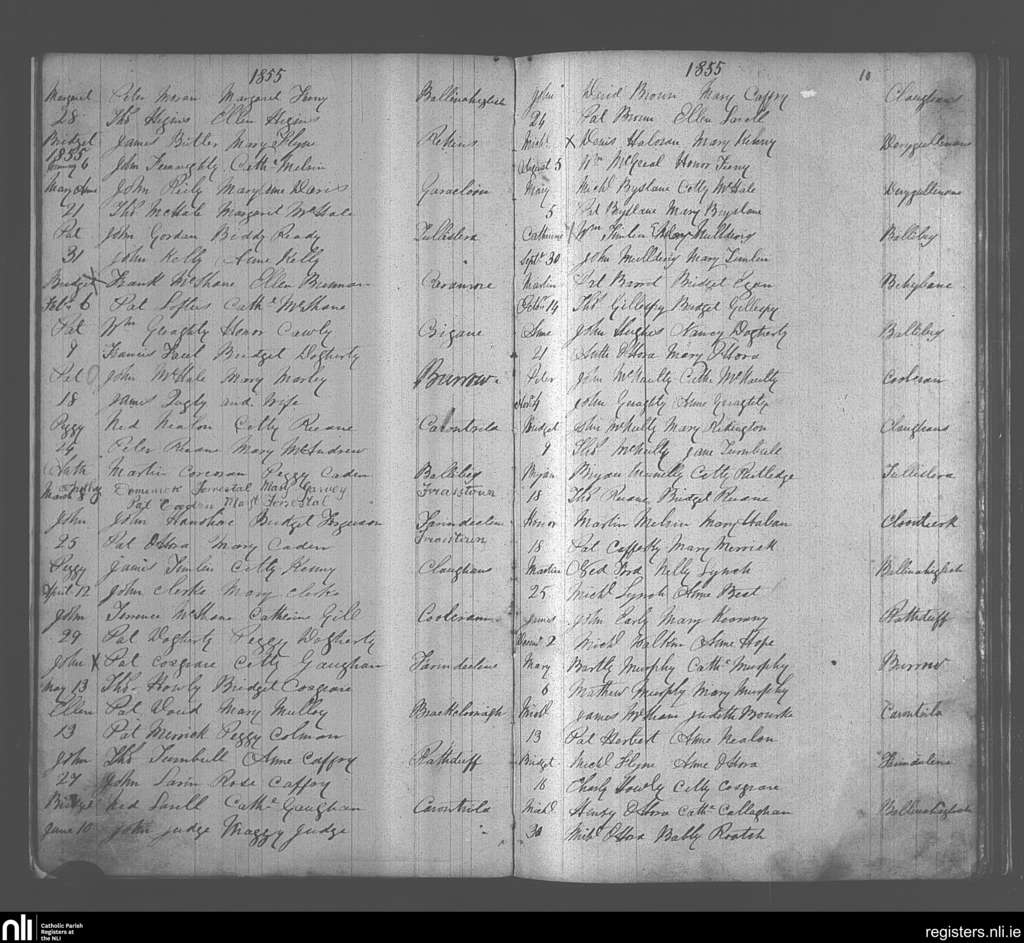 1855
Margaret Peter Moran Margaret Ferry Ballinaheglish
28 Thos Higins Ellen Higins
Bridget James Butler Mary Flyn Rehins
1855
6 John Feraughty Cathe Melvin
Mary Anne John Reily Mary Anne Davis Garacloon
21 Thos McHale Margaret McHale
Pat John Gordan Biddy Ready Tullidera
31 John Kelly Anne Kelly
Bridget X Frank McShane Ellen Brennan
Feby 6 Pat Loftus Cathe McShane
Pat Wm Geraghty Honor Cawly Bigane
9 Francis Faul Bridget Dogherty
Pat John McHale Mary Marley Burrow
18 James Quigly and Wife
Peggy Ned Nealon Citty Ruane Carontrila
24 Peter Ruane Mary McAndrew
Martin Corcoran Peggy Caden Balliby
March 8 Domenick Forrestal Mary Garvey Friarstown
Pat Caden Mary Forrestal
John John Hanahoe Bridget Ferguson Farindeelin
Friarstown
25 Pat O Hora Mary Caden
Peggy James Timlin Citty Kenny Cloughans
April 12 John Clerke Mary Clerke
John Terence McShane Catherine Gill Coolcran
29 Pat Dogherty Peggy Dogherty
John X Pat Cosgrave Citty Gaughan Farindeelin
May 13 Thos Howly Bridget Cosgrave
Ellen Pat Doud Mary Mulloy Brackcloonagh
13 Pat Merrick Peggy Colman
John Thos Turnbull Anne Caffry Rathduff
27 John Lavin Rose Caffry
Bridget Ned Lavell Cathe Gaughan Carontrila
June 10 John Judge Maggy Judge
1855 10
John David Brown Mary Caffry Cloughans
24 Pat Brown Ellen Lavell
Michl X Denis Haloran Mary Kinny Derygullinane
August 5 Wm McGreal Honor Ferry
Mary Michl Byslane Citty McHale Derygullinane
5 Pat Byslane Mary Byslane
Catherine Wm Timlin Mary Mulldery Balliby
Septr 30 John Mulldery Mary Timlin
Martin Pat Bavord Bridget Egan Behybane
Octbr 14 Thos Gillespy Bridget Gillespy
Anne John Hughes Nancy Dogherty Balliby
21 O Hora Mary O Hora
Peter John McNaulty Cathe McNaulty Coolcran
Novr 4 John Geraghty Anne Geraghty
Bridget John McNulty Mary Ridington Cloughans
9 Thos McNulty Jane Turnbull
Bryan Bryan Munnelly Citty Rutledge Tullidera
18 Thos Ruane Bridget Ruane
Honor Martin Melvin Mary Halan
18 Pat Cafferty Mary Merrick
Martin Ned Ford Nelly Lynch Ballinaheglish
25 Michl Lynch Anne Best
James John Early Mary Keaveny Rathduff
Decemr 2 Michl Walton Anne Hope
Mary Bartly Murphy Cathe Murphy Burrow
6 Mathew Murphy Mary Murphy
Michl James McHane Judith Bourke Carontrila
13 Pat Herbert Anne Nealon
Bridget Michl Flyne Anne O Hora
16 Charly Howly Citty Cosgrave
Michl Henry O Hora Cathe Callaghan Ballinaheglish
30 Michl O Hora Babby Roatch
nli
Catholic Parish
Registers at
the NLI
registers.nli.ie